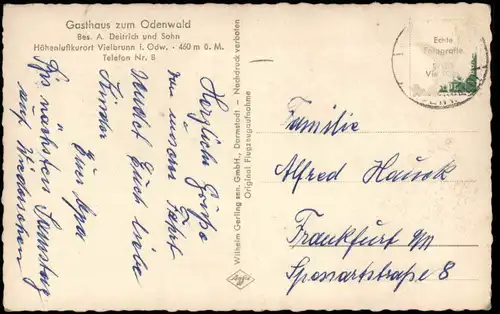 Gasthaus zum Odenwald
Bes. A. Deitrich und Sohn
Höhenluftkurort Vielbrunn i. Odw. - 460 m ü. M.
Telefon Nr. 8
Herzliche Grüße
von unserer Fahrt
sendet Euch liebe
Kinder
Euer Opa
Bis nächsten Samstag
auf Wiedersehen
Wilhelm Gerling sen. GmbH., Darmstadt — Nachdruck verboten
Original Flugzeugaufnahme
Echte
Fotografie
Familie
Alfred Hauck
Frankfurt a/M
Spessartstraße 8